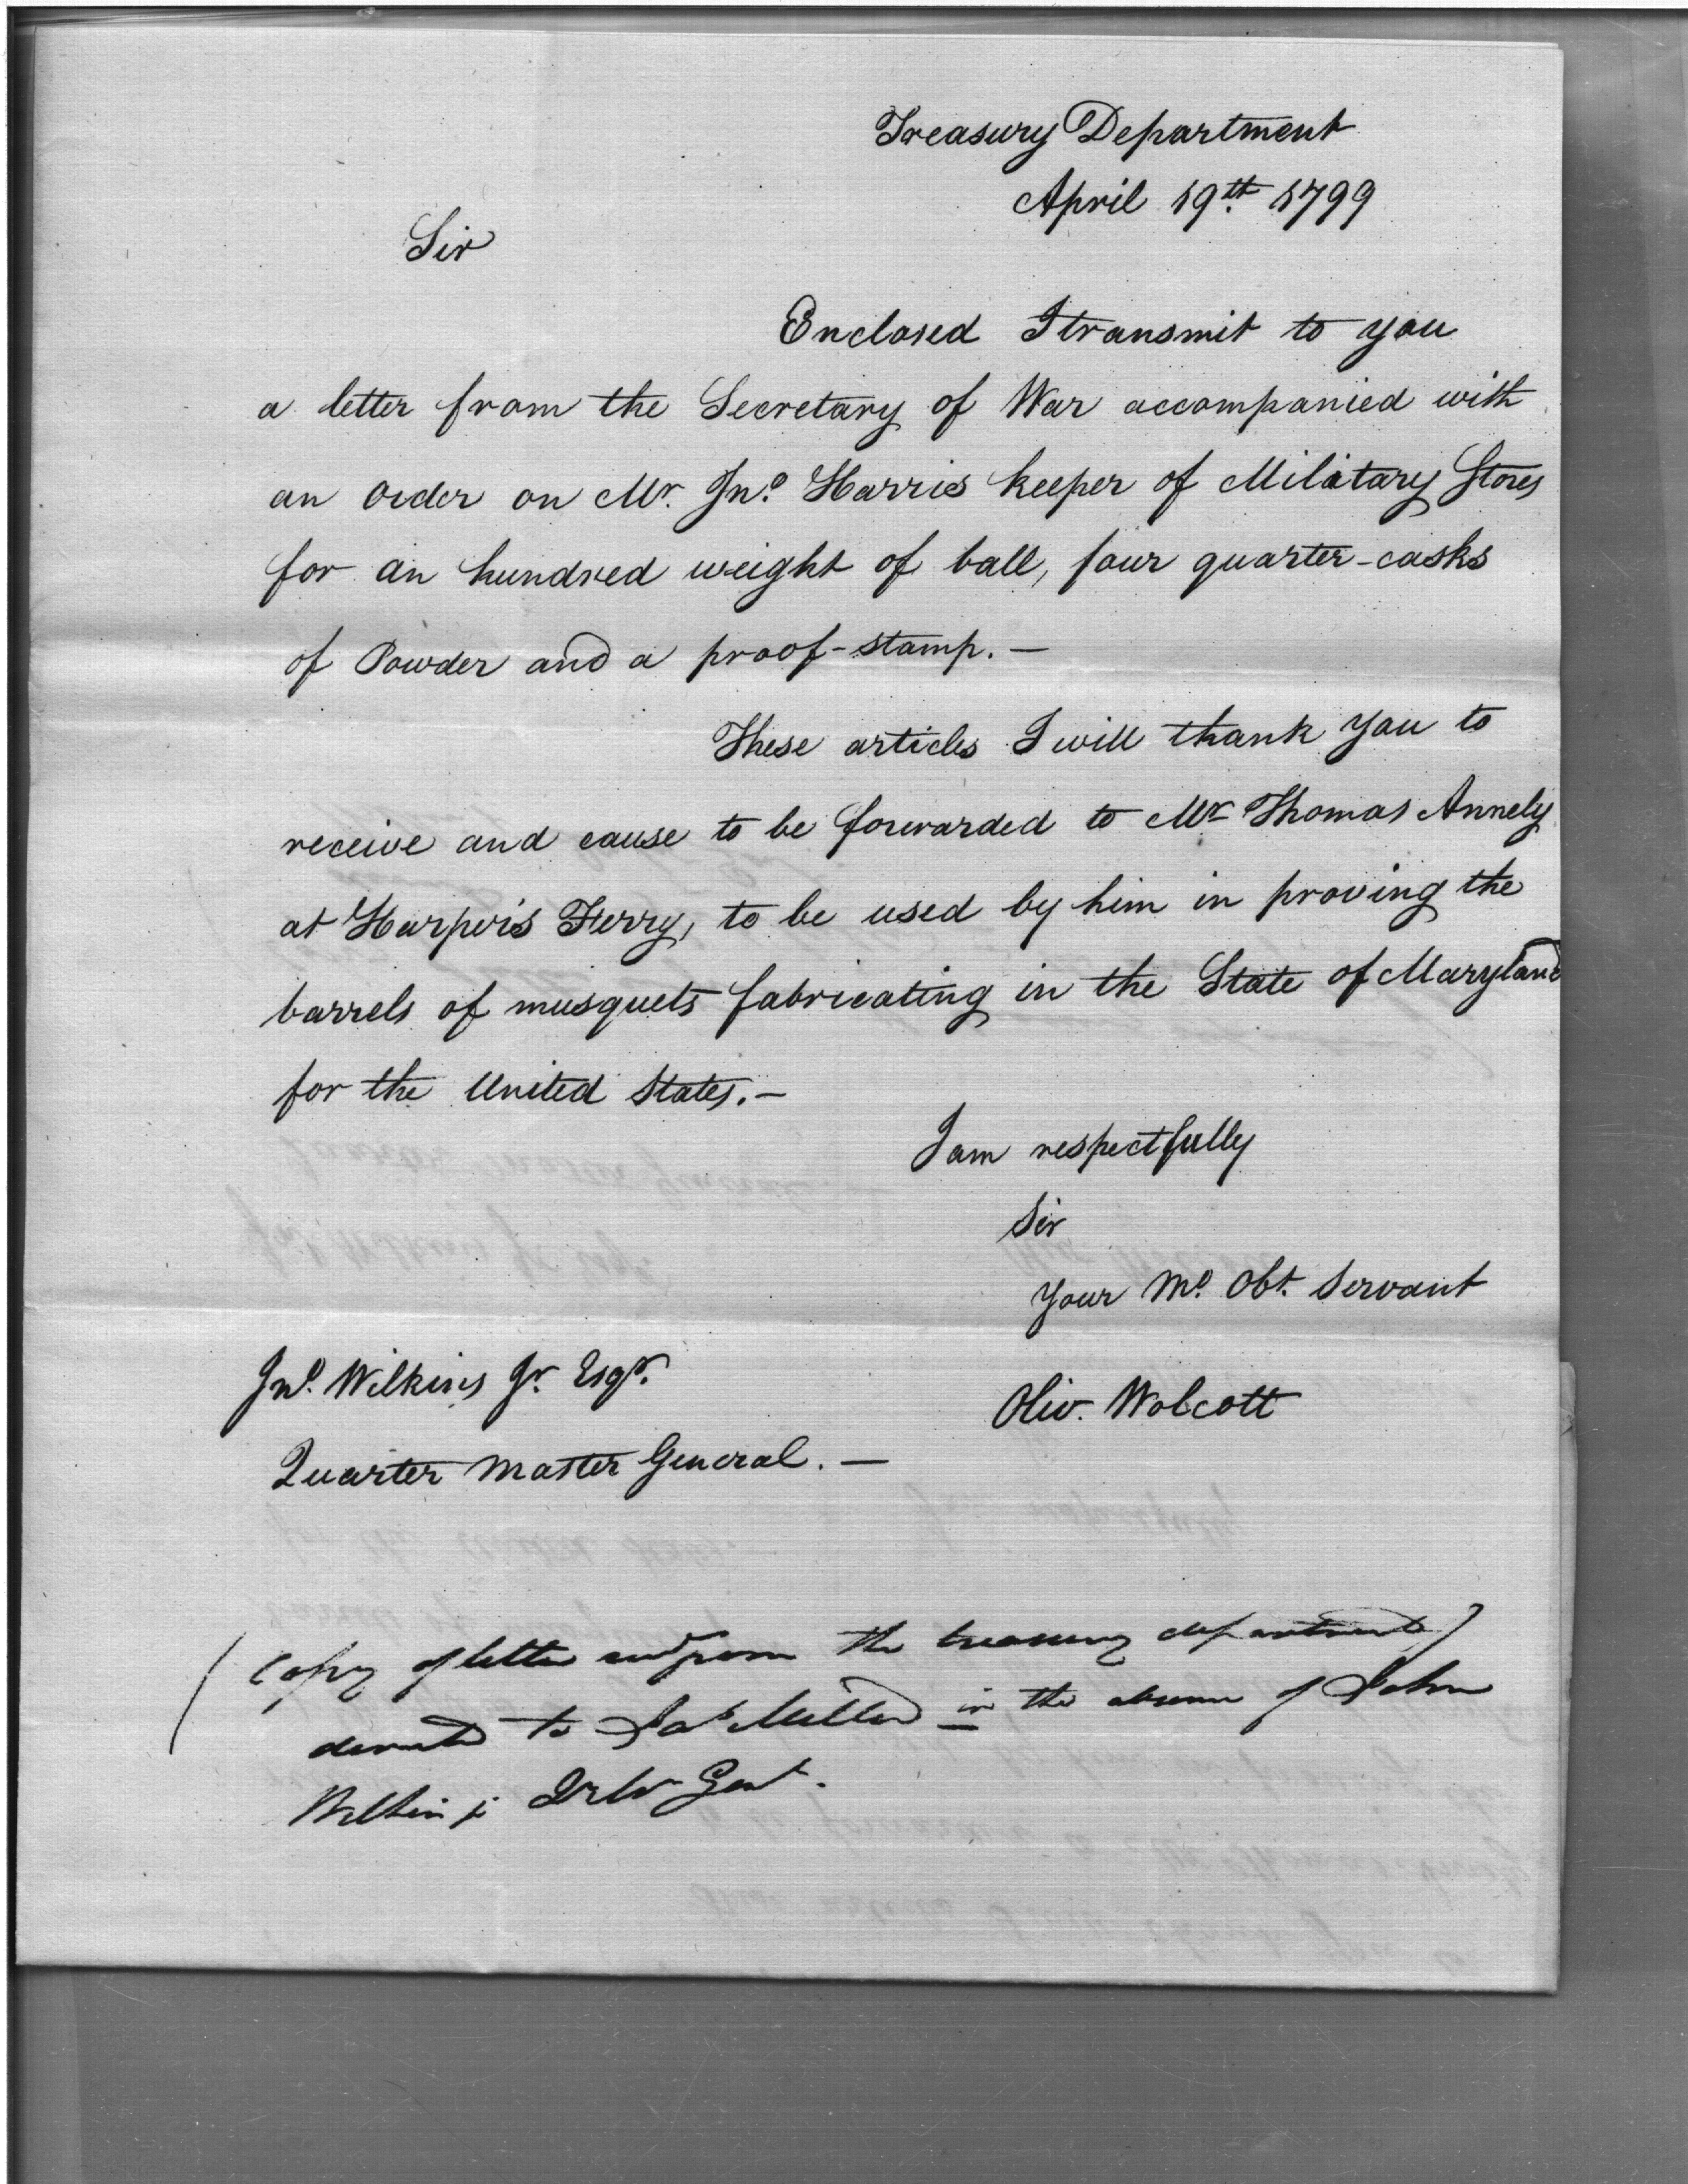 Treasury Department
April 19th 1799
Sir
Enclosed I transmit to you
a letter from the Secretary of War accompanied with
an order on Mr. Jno. Harris keeper of Military Stores
for an hundred weight of ball, four quarter-casks
of Powder and a proof-stamp. —
These articles I will thank you to
receive and cause to be forwarded to Mr Thomas Annely
at Harper's Ferry, to be used by him in proving the
barrels of musquets fabricating in the State of Maryland
for the United States. —
I am respectfully
Sir
Your Mo. Obt. Servant
Oliv. Wolcott
Jno. Wilkins Jr. Esqr.
Quarter Master General. —
(Copy of letter from the treasury department)
to Jas Miller in the absence of John
Wilkins jr Qr Mr Genl.